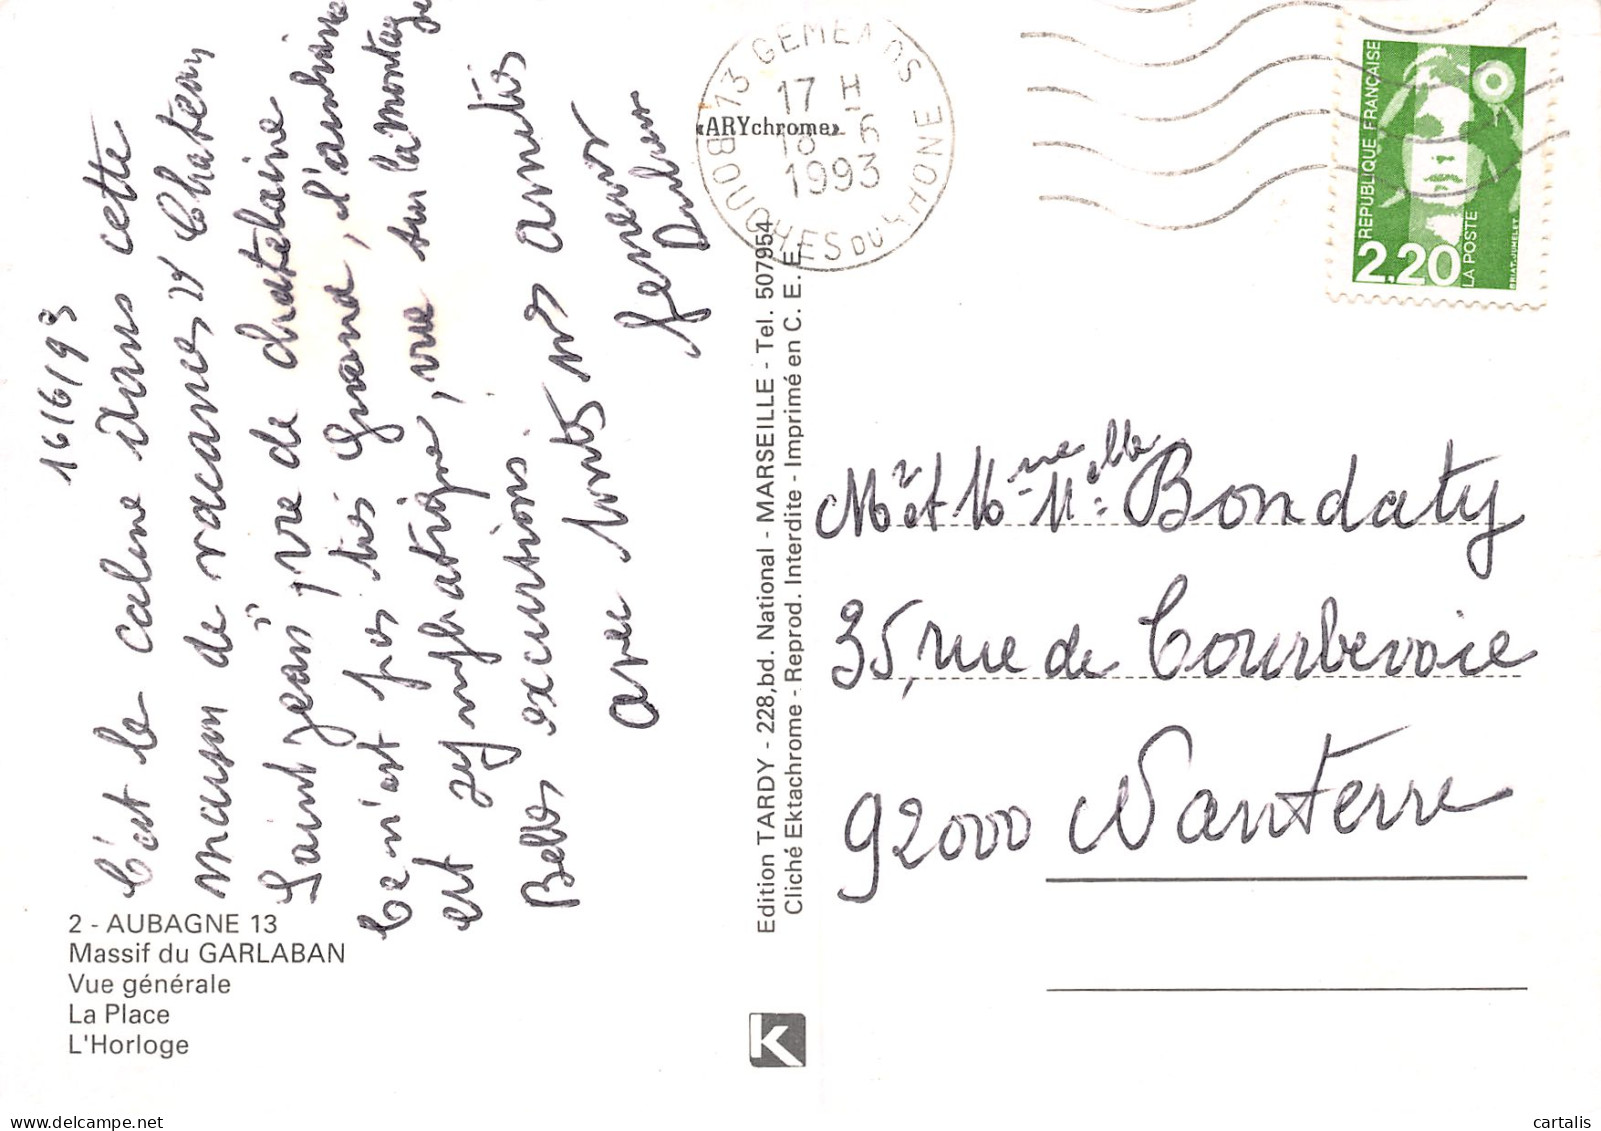 16/6/93
C'est le calme dans cette
maison de vacances "Chateau
Saint Jean", vie de chatelaine
Ce n'est pas très grand, l'ambiance
est sympathique, vue sur la montagne
Belles excursions.
avec toutes nos amitiés
2 - AUBAGNE 13
Massif du GARLABAN
Vue générale
La Place
L'Horloge
Edition TARDY - 228,bd. National - MARSEILLE - Tel. 507954
Cliché Ektachrome - Reprod. Interdite - Imprimé en C. E. E.
K
«ARYchrome»
13 GEMENOS
17 H
6
1993
BOUCHES DU RHONE
RÉPUBLIQUE FRANÇAISE
2,20
LA POSTE
BRIAT.JUMELET
Mr et Mme Melle Bondaty
35, rue de Courbevoie
92000 Nanterre
cartalis